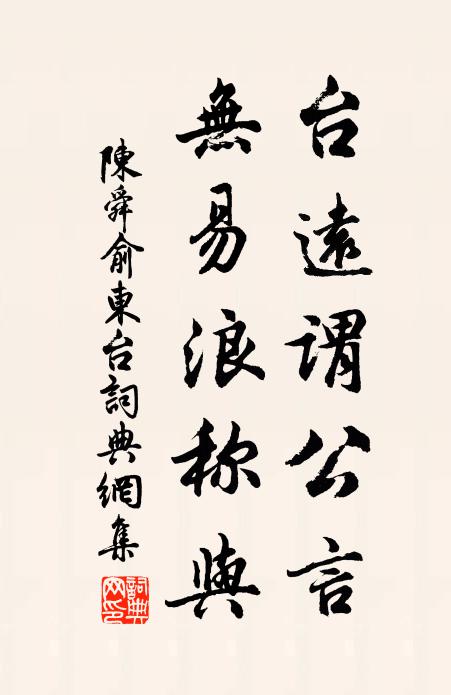 台遠謂公言
無易浪称與
陳舜俞東台詞典網集
詞典网印